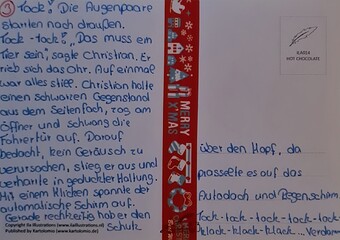 ① Tock!" Die Augenpaare
starten nach draußen.
Tock-tock!" „Das muss ein
Tier sein", sagte Christian. Er
rieb sich das Ohr. Auf einmal
war alles still. Christian holte
einen schwarzen Gegenstand
aus dem Seitenfach, zog am
Öffner und schwang die
Fahrertür auf. Darauf
bedacht, kein Geräusch zu
verursachen, stieg er aus und
verharrte in geduckter Haltung.
Mit einem Klicken spannte der
automatische Schirm auf.
Gerade rechtzeitig hob er den
Schutz
MERRY
X'MAS
ILARIA
HOT CHOCOLATE
über den Kopf, da
prasselte es auf das
Autodach und Regenschirm.
Tock-tack-tock-tack-tock-tack-
klack-klack-klack... Verdammt